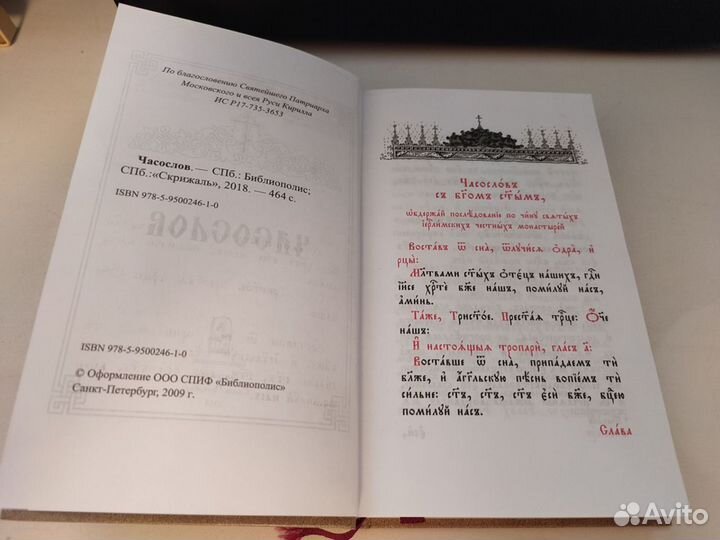 По благословению Святейшего Патриарха
Московского и всея Руси Кирилла
ИС Р17-735-3653
Часослов. — СПб.: Библиополис;
СПб.:«Скрижаль», 2018. — 464 с.
ISBN 978-5-9500246-1-0
ISBN 978-5-9500246-1-0
© Оформление ООО СПИФ «Библиополис»
Санкт-Петербург, 2009 г.
Часосло́въ
съ бг҃омъ ст҃ымъ,
ѡ҆держа́й послѣ́дованїе по чи́ну свѧты́хъ
і҆ерⷭ҇ли́мскихъ честны́хъ монастыре́й
Воста́въ ѿ сна̀, ѿлꙋчи́сѧ ѻ҆дра̀, и҆
рцы̀:
Мл҃твами ст҃ы́хъ ѻ҆тє́цъ на́шихъ, гдⷭ҇и
і҆и҃се хрⷭ҇тѐ бж҃е на́шъ, поми́лꙋй на́съ,
а҆ми́нь.
Та́же, Трист҃о́е. Прест҃а́ѧ трⷪ҇це: Ѻ҆́ч҃е
на́шъ:
И҆ настоѧ́щыѧ тропари̑, гла́съ а҃:
Воста́вше ѿ сна̀, припа́даемъ тѝ
бл҃же, и҆ а҆́гг҃льскꙋю пѣ́снь вопїе́мъ тѝ
си́льне: ст҃ъ, ст҃ъ, ст҃ъ є҆сѝ бж҃е, бцⷣею
поми́лꙋй на́съ.
Сла́ва
Avito